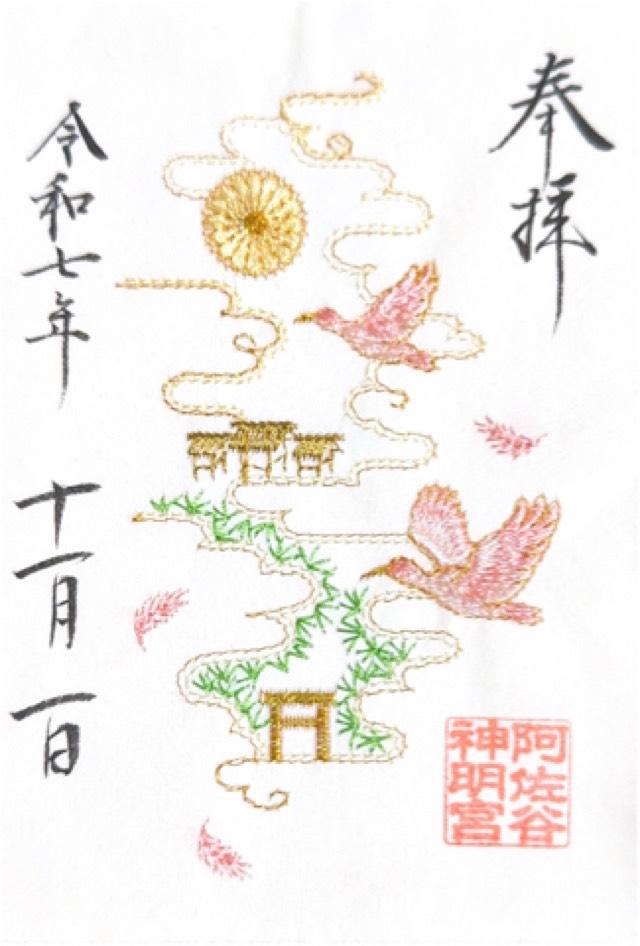 奉拝
阿佐谷
神明宮
令和七年 十一月 一日